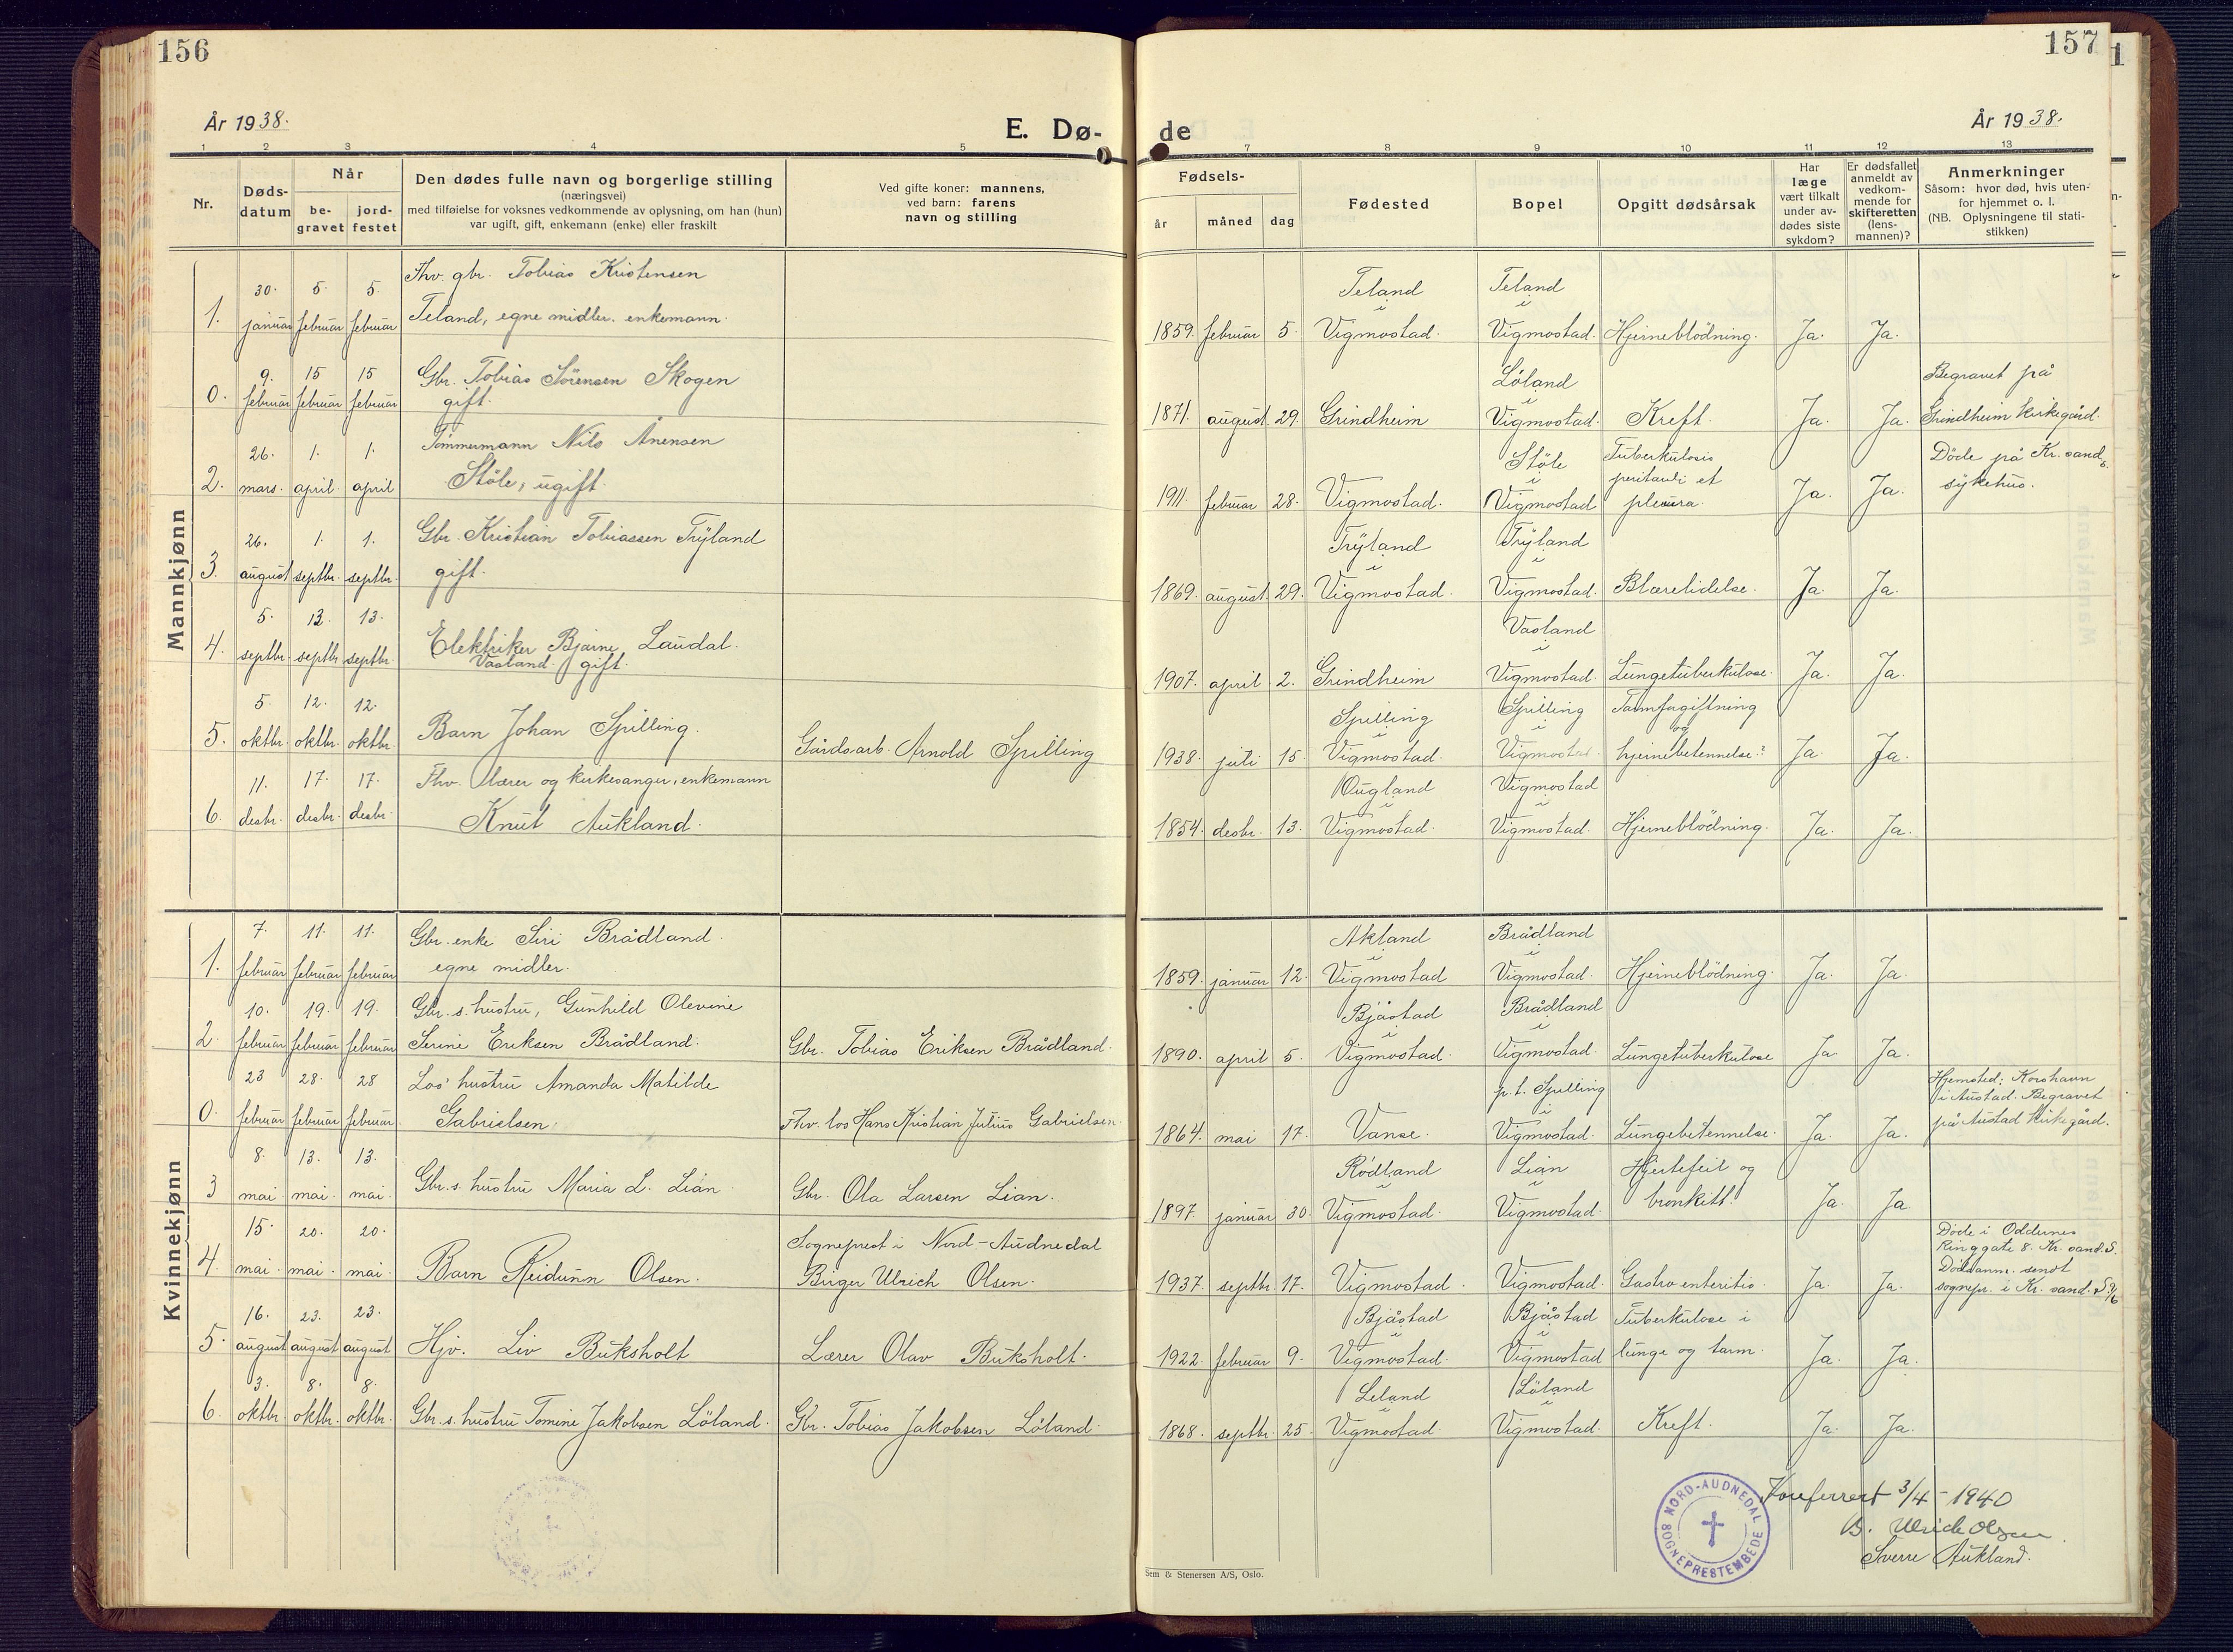 156
157
1
År 1938.
E. Dø-
de
År 1938.
1 2 3 4 5 7 8 9 10 11 12 13
Nr.
Døds-
datum
Når
be-
gravet
jord-
festet
Den dødes fulle navn og borgerlige stilling
(næringsvei)
med tilføielse for voksnes vedkommende av oplysning, om han (hun)
var ugift, gift, enkemann (enke) eller fraskilt
Ved gifte koner: mannens,
ved barn: farens
navn og stilling
Fødsels-
år måned dag
Fødested
Bopel
Opgitt dødsårsak
Har
læge
vært tilkalt
under av-
dødes siste
sykdom?
Er dødsfallet
anmeldt av
vedkom-
mende for
skifteretten
(lens-
mannen)?
Anmerkninger
Såsom: hvor død, hvis uten-
for hjemmet o. l.
(NB. Oplysningene til stati-
stikken)
Mannkjønn
1. 30. januar 5. februar 5. februar
Fhv. gbr. Tobias Kristensen
Teland, egne midler. enkemann.
1859. februar 5. Teland i Vigmostad. Teland i Vigmostad. Hjerneblödning. Ja. Ja.
0. 9. februar 15 februar 15 februar
Gbr. Tobias Sörensen Skogen
gift.
1871. august 29. Grindheim Löland i Vigmostad. Kreft. Ja. Ja.
Begravet på
Grindheim kirkegård.
2. 26. mars. 1. april. 1. april
Tömmermann Nils Ånensen
Stöle, ugift.
1911 februar 28. Vigmostad. Stöle i Vigmostad Tuberkulosis
peritauli et
pleura. Ja. Ja.
Döde på Kr. sands
sykehus.
3. 26. august 1. septbr. 1. septbr.
Gbr. Kristian Tobiassen Tryland
gift.
1869. august 29. Tryland i Vigmostad. Tryland i Vigmostad. Blærelidelse. Ja. Ja.
4. 5. septbr. 13. septbr. 13. septbr.
Elektriker Bjarne Laudal.
Vasland. gift.
1907. april 2. Grindheim Vasland i Vigmostad. Lungetuberkulose. Ja. Ja.
5. 5. oktbr. 12. oktbr. 12. oktbr.
Barn Johan Spilling.
Gårdsarb. Arnold Spilling
1938. juli 15. Spilling i Vigmostad. Spilling i Vigmostad. Tarmforgiftning
og
hjernebetennelse? Ja. Ja.
6. 11. desbr. 17. desbr. 17. desbr.
Fhv. lærer og kirkesanger, enkemann
Knut Aukland.
1854. desbr. 13. Ougland i Vigmostad. Vigmostad i Vigmostad. Hjerneblödning. Ja. Ja.
Kvinnekjønn
1. 7. februar 11. februar 11. februar
Gbr. enke Siri Brådland.
egne midler.
1859. januar 12. Akland i Vigmostad Brådland i Vigmostad. Hjerneblödning. Ja. Ja.
2. 10. februar 19. februar 19. februar
Gbr. s. hustru, Gunhild Olevine
Serine Eriksen Brådland.
Gbr. Tobias Eriksen Brådland.
1890. april 5. Bjåstad i Vigmostad. Brådland i Vigmostad. Lungetuberkulose Ja. Ja.
0. 23 februar 28. februar 28 februar
Los' hustru Amanda Matilde
Gabrielsen.
Fhv. los Hans Kristian Julius Gabrielsen.
1864. mai 17. Vanse. p.t. Spilling i Vigmostad. Lungebetennelse. Ja. Ja.
Hjemsted: Korshavn
i Austad. Begravet
på Austad kirkegård.
3 8. mai 13. mai. 13. mai.
Gbr. s. hustru Maria L. Lian.
Gbr. Ola Larsen Lian.
1897. januar 30. Rödland i Vigmostad. Lian i Vigmostad. Hjertefeil og
bronkitt. Ja. Ja.
4. 15. mai. 20. mai. 20. mai.
Barn Reidunn Olsen.
Sogneprest i Nord-Audnedal
Birger Ulrich Olsen.
1937. septbr. 17. Vigmostad. Vigmostad. Gastro enteritis. Ja. Ja.
Döde i Oddernes
Ringgate 8. Kr. sand. S.
Dödsanm. sendt
sognepr. i Kr. sand. S 3/6
5. 16. august 23. august 23. august
Hjv. Liv Buksholt
Lærer Olav Buksholt.
1922. februar 9. Bjåstad i Vigmostad. Bjåstad i Vigmostad Tuberkulose i
lunge og tarm. Ja. Ja.
6. 3. oktbr. 8. oktbr. 8. oktbr.
Gbr. s. hustru Tomine Jakobsen Löland.
Gbr. Tobias Jakobsen Löland.
1868. septbr. 25. Leland i Vigmostad. Löland i Vigmostad. Kreft. Ja. Ja.
NORD-AUDNEDAL SOGNEPRESTEMBEDE
Konferert 3/4 - 1940
B. Ulrich Olsen
Sverre Aukland.
Sem & Stenersen A/S, Oslo.